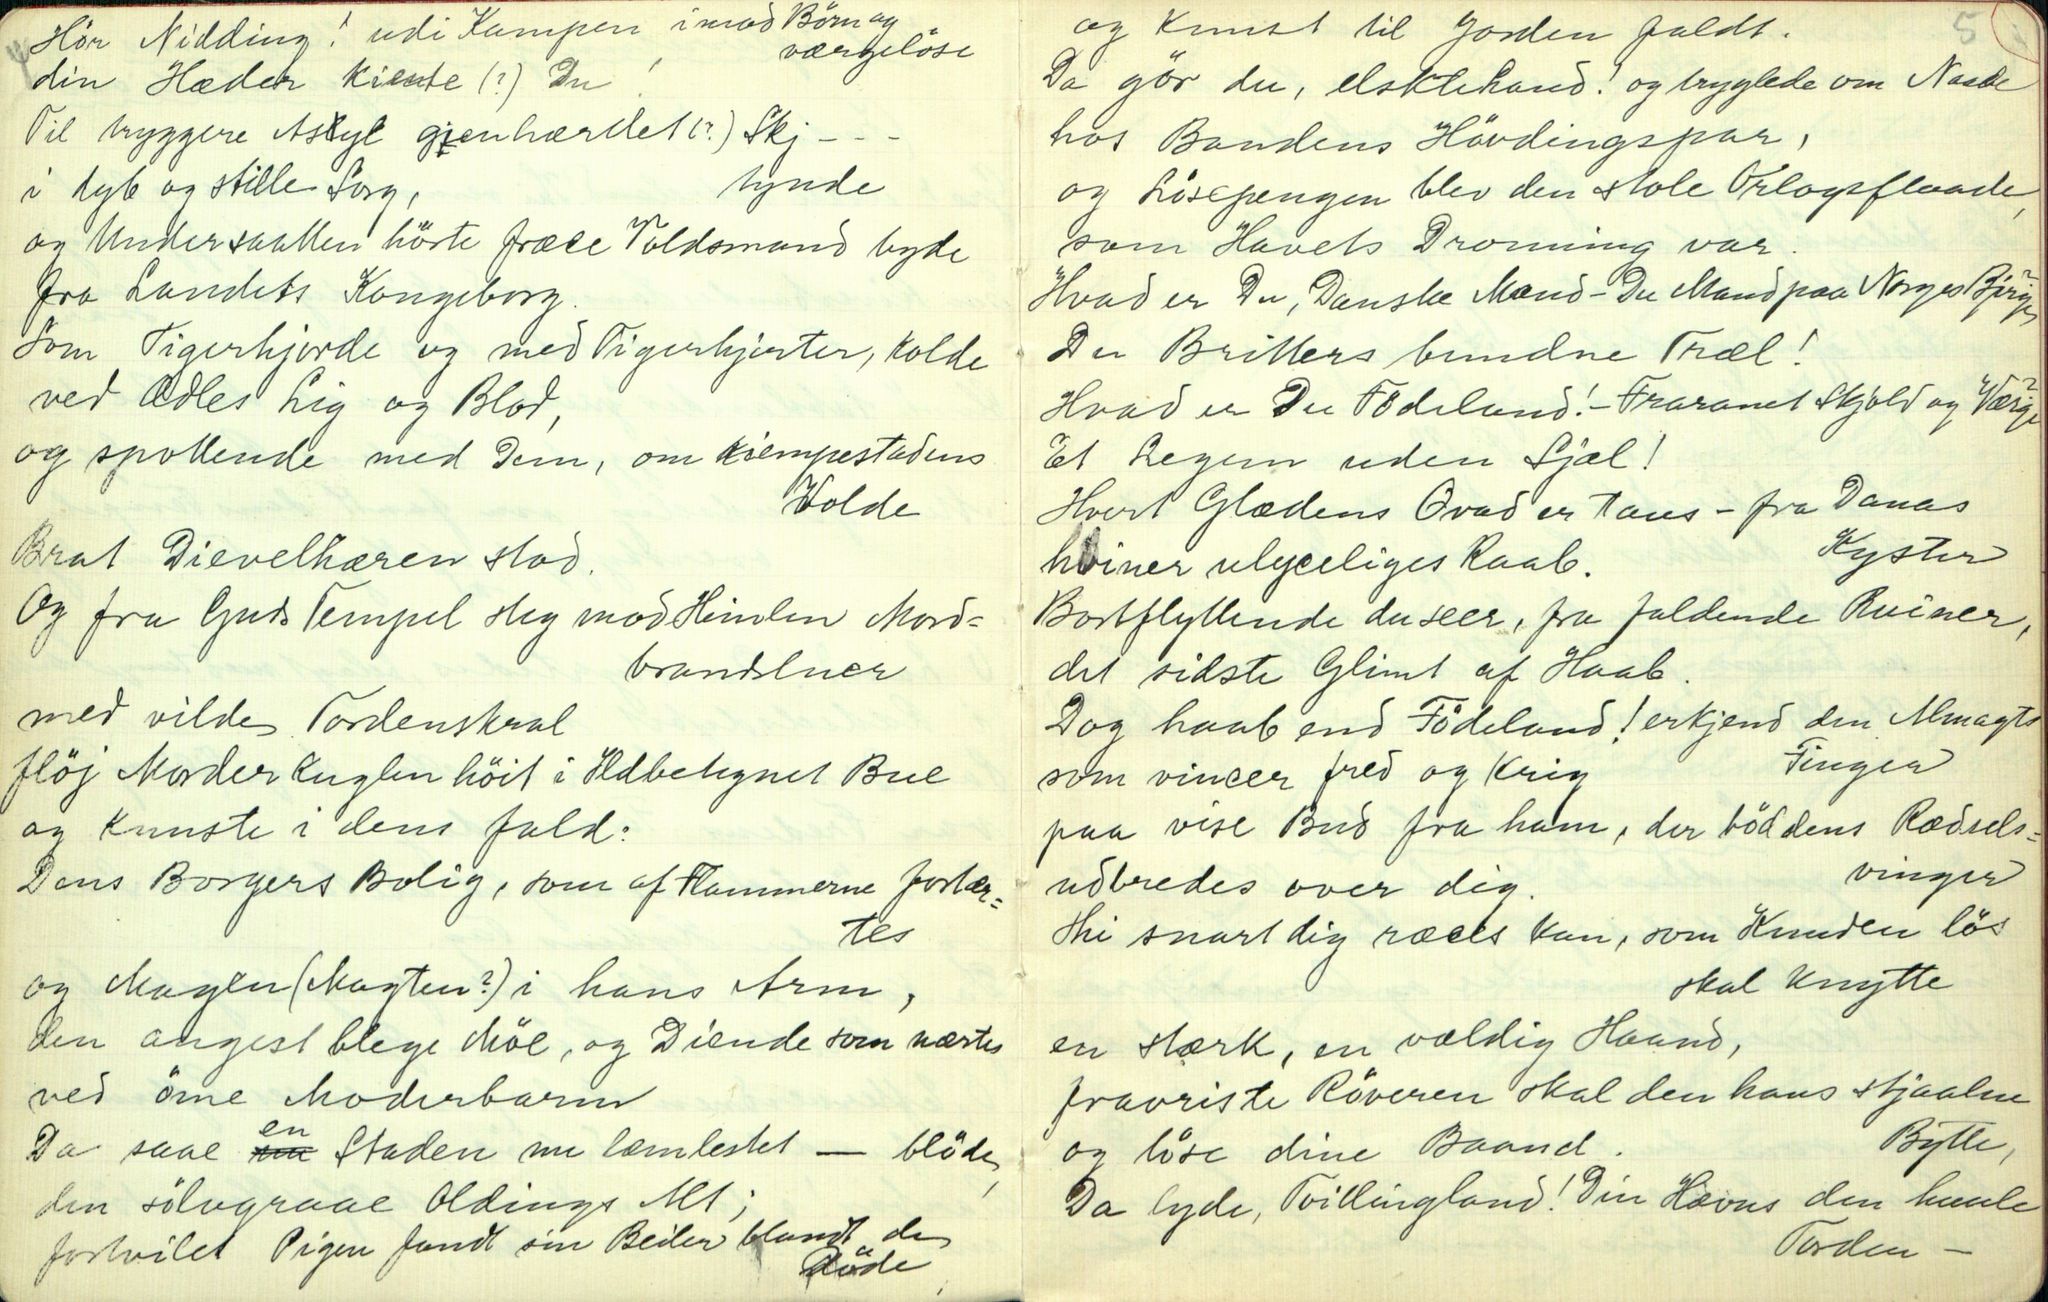 Hör Nidding! udi Kampen imod Börn og
værgelöse
din Hæder kiendte (?) Du!
Til tryggere Asyl gjenhærdet (?) Skj - - -
i dyb og stille Sorg, tynde
og Undersaatten hörte fræke Voldsmand byde
fra Landets Kongeborg.
Som Tigerhjorde og med Tigerhjerter, kolde
ved Ædles Lig og Blod,
og spottende med Dem, om Kiempestadens
Volde
Brat Dievelhæren stod.
Og fra Guds Tempel steg mod Himlen Mord=
brandsluer
med vilde Tordenskral
flöj Morderkuglen höit i Ildbetegnet Bue
og knuste i dens fald:
Dens Borgers Bolig, som af Flammerne fortær=
tes
og Magen (Magten?) i hans Arm,
den angest blege Möe, og Diende som nærtes
ved ömme Moderbarm
Da saae en Staden nu lemlestet — blöde,
den sölvgraae Oldings Alt;
fortvilet Pigen fandt sin Beiler blandt de
döde
5
og Kunst til Jorden faldt.
Da gör du, elskte Land! og tryglede om Naade
hos Bandens Hövdingspar,
og Lösepengen blev den stolte Orlogsflaade,
som Havets Dronning var.
Hvad er Du, Danske Mand - Du Mand paa Norges Bjerge?
Du Britters bundne Træl!
Hvad er Du Födeland! - Fraranet Skjold og Værge?
Et Legem uden Sjæl!
Hvert Glædens Qvad er taus - fra Danas
Kyster
hviner ulyceliges Raab.
Bortflyttende du seer, fra faldende Ruiner,
det sidste Glimt af Haab.
Dog haab end Födeland! erkjend den Almagts
Finger
som vincer fred og Krig
paa vise Bud fra ham, der böd dens Rædsels=
vinger
udbredes over dig.
thi snart dig ræces kan, som Knuden lös
skal knytte
en stærk, en vældig Haand,
fravriste Röveren skal den hans stjaalne
Bytte,
og löse dine Baand.
Da lyde, Tvillingland! Din Hævns den huule
Torden —